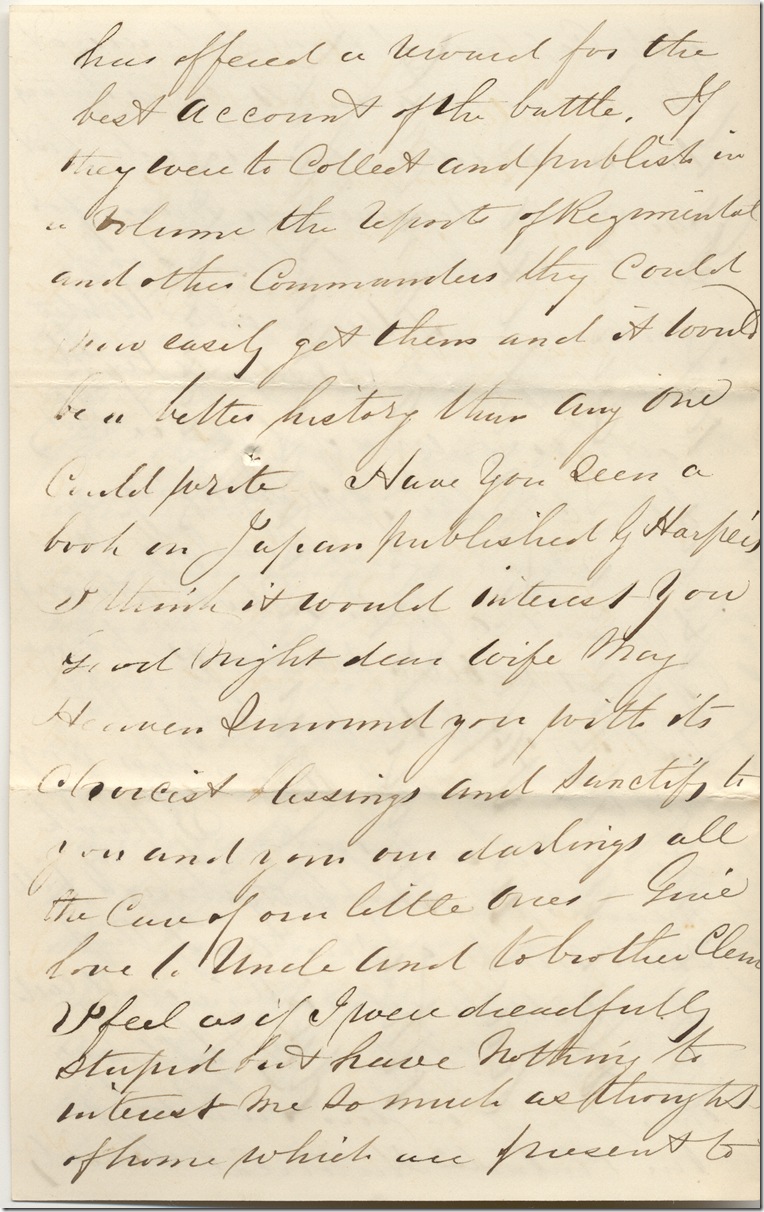 has offered a reward for the
best account of the battle. If
they were to Collect and publish in
a volume the reports of Regimental
and other Commanders they Could
now easily get them and it would
be a better history than any one
Could write Have you seen a
book on Japan published by Harpers
I think it would interest you
Good night dear wife May
Heaven Surround you with its
Choicest blessings and sanctify to
you and your our darlings all
the Care of our little ones – Give
love to Uncle and to brother Clem
I feel as if I were dreadfully
stupid but have nothing to
interest me so much as thoughts
of home which are present to